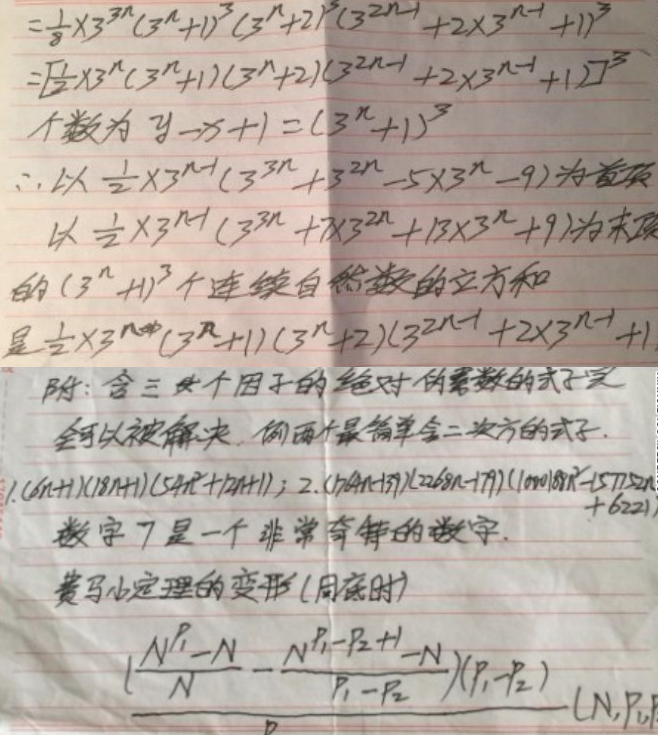 =1/8×3^{3n}(3^n+1)^3(3^n+2)^3(3^{2n-1}+2×3^{n-1}+1)^3
=[1/2×3^n(3^n+1)(3^n+2)(3^{2n-1}+2×3^{n-1}+1)]^3
个数为 y-x+1=(3^n+1)^3
∴以 1/2×3^{n-1}(3^{3n}+3^{2n}-5×3^n-9)为首项
以 1/2×3^{n-1}(3^{3n}+7×3^{2n}+13×3^n+9)为末项
的(3^n+1)^3个连续自然数的立方和
是 1/2×3^n(3^n+1)(3^n+2)(3^{2n-1}+2×3^{n-1}+1
附:含三个因子的绝对伪素数的式子完
全可以被解决.例两个最简单含二次方的式子.
1.(6n+1)(18n+1)(54n²+12n+1); 2.
数字7是一个非常奇特的数字.
费马小定理的变形(同底时)
(\frac{N^{P₁}-N}{N}-\frac{N^{P₁-P₂+1}-N}{P₁-P₂})(P₁-P₂)
(N,P₁,P